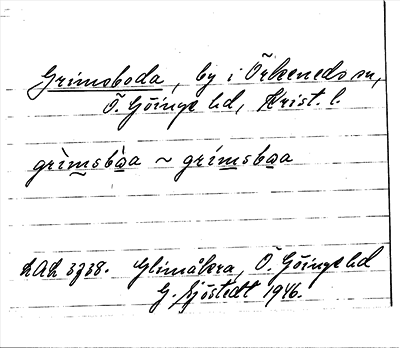 Grimsboda, by i Örkeneds sn,
Ö. Göinge hd, Krist. l.
grìmsbàa ~ grímsbaa
LAL 3738. Glimåkra, Ö. Göinge hd
G. Sjöstedt 1946.